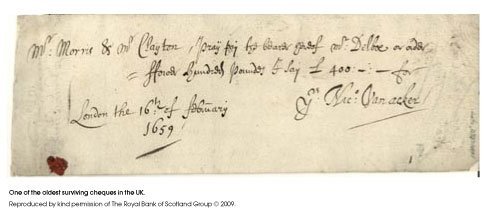 Mr. Morris & Mr Clayton, Pray pay the bearer hereof Mr. Delboe or order
ffower Hundred Poundes I say £ 400 : - : - for
London the 16th. of february Yrs Nic: Vanacker
1659
One of the oldest surviving cheques in the UK.
Reproduced by kind permission of The Royal Bank of Scotland Group © 2009.